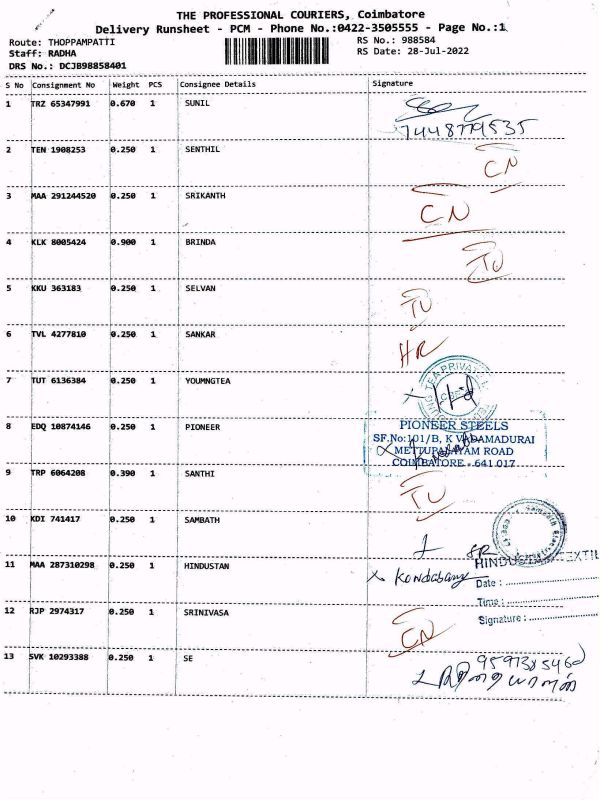 THE PROFESSIONAL COURIERS, Coimbatore
Delivery Runsheet - PCM - Phone No.:0422-3505555 - Page No.:1
Route: THOPPAMPATTI RS No.: 988584
Staff: RADHA RS Date: 28-Jul-2022
DRS No.: DCJB98858401
S No Consignment No Weight PCS Consignee Details Signature
1 TRZ 65347991 0.670 1 SUNIL
2 TEN 1908253 0.250 1 SENTHIL CN
3 MAA 291244520 0.250 1 SRIKANTH CN
4 KLK 8005424 0.900 1 BRINDA TU
5 KKU 363183 0.250 1 SELVAN TU
6 TVL 4277810 0.250 1 SANKAR HR
7 TUT 6136384 0.250 1 YOUMNGTEA
8 EDQ 10874146 0.250 1 PIONEER
PIONEER STEELS
SF.No:101/B, K VADAMADURAI
METTUPALAYAM ROAD
COIMBATORE - 641 017
9 TRP 6064208 0.390 1 SANTHI TU
10 KDI 741417 0.250 1 SAMBATH
11 MAA 287310298 0.250 1 HINDUSTAN
Date :
Time :
Signature :
12 RJP 2974317 0.250 1 SRINIVASA CN
13 SVK 10293388 0.250 1 SE